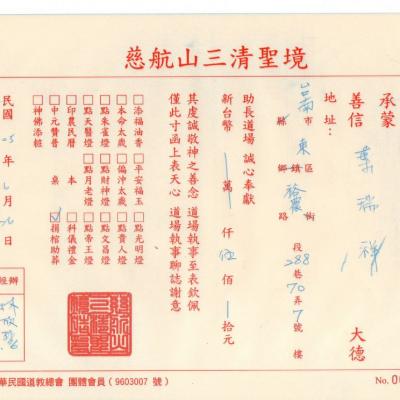 慈航山三清聖境
承蒙
善信 葉瑞祥 大德
地址：台南縣市 東鄉鎮區 裕農路街 段 288 巷 70 弄 7 號 樓
助長道場 誠心奉獻
新台幣 萬 仟 伍 佰 拾元
其虔誠敬神之善念 道場執事至表欽佩
僅此寸函上表天心 道場執事聊誌謝意
□添福油香 □平安福玉 □點光明燈
□本命太歲 □偏沖太歲 □點貴人燈
□點朱雀燈 □點財神燈 □點文昌燈
□點天醫燈 □點月老燈 □點帝王燈
□印農民曆 □科儀禮金
□中元贊普 桌 ☑捐棺助葬
□神佛添粧
民國 年 月 日
經辦
華民國道教總會 團體會員（9603007 號）
No.